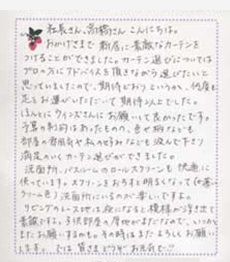 社長さん、高橋さん こんにちは。
おかげさまで 新居に素敵なカーテンを
つけることができました。カーテン選びについては
プロの方にアドバイスを頂きながら選びたいと
思っていましたので、期待どおりというか、何度も
足をお運びいただいて期待以上でした。
ほんとにウィンズさんにお願いして良かったです。
予算の制約はあったものの、色や柄なども
部屋の雰囲気や私のせみなども汲んで下さり
満足のいくカーテン選びができました。
洗面所、バスルームのロールスクリーンも快適に
使っています。スクリーンをおろすと明るくなって(和書い
クリーム色)洗面所にいるのが楽しいです。
リビングのレースは夜になると模様が浮き出て
素敵です。子供部屋も予算がまだなので、いつかまた
お願いするのも。その時はまたよろしくお願い
します。では皆さまどうぞお元気で!!